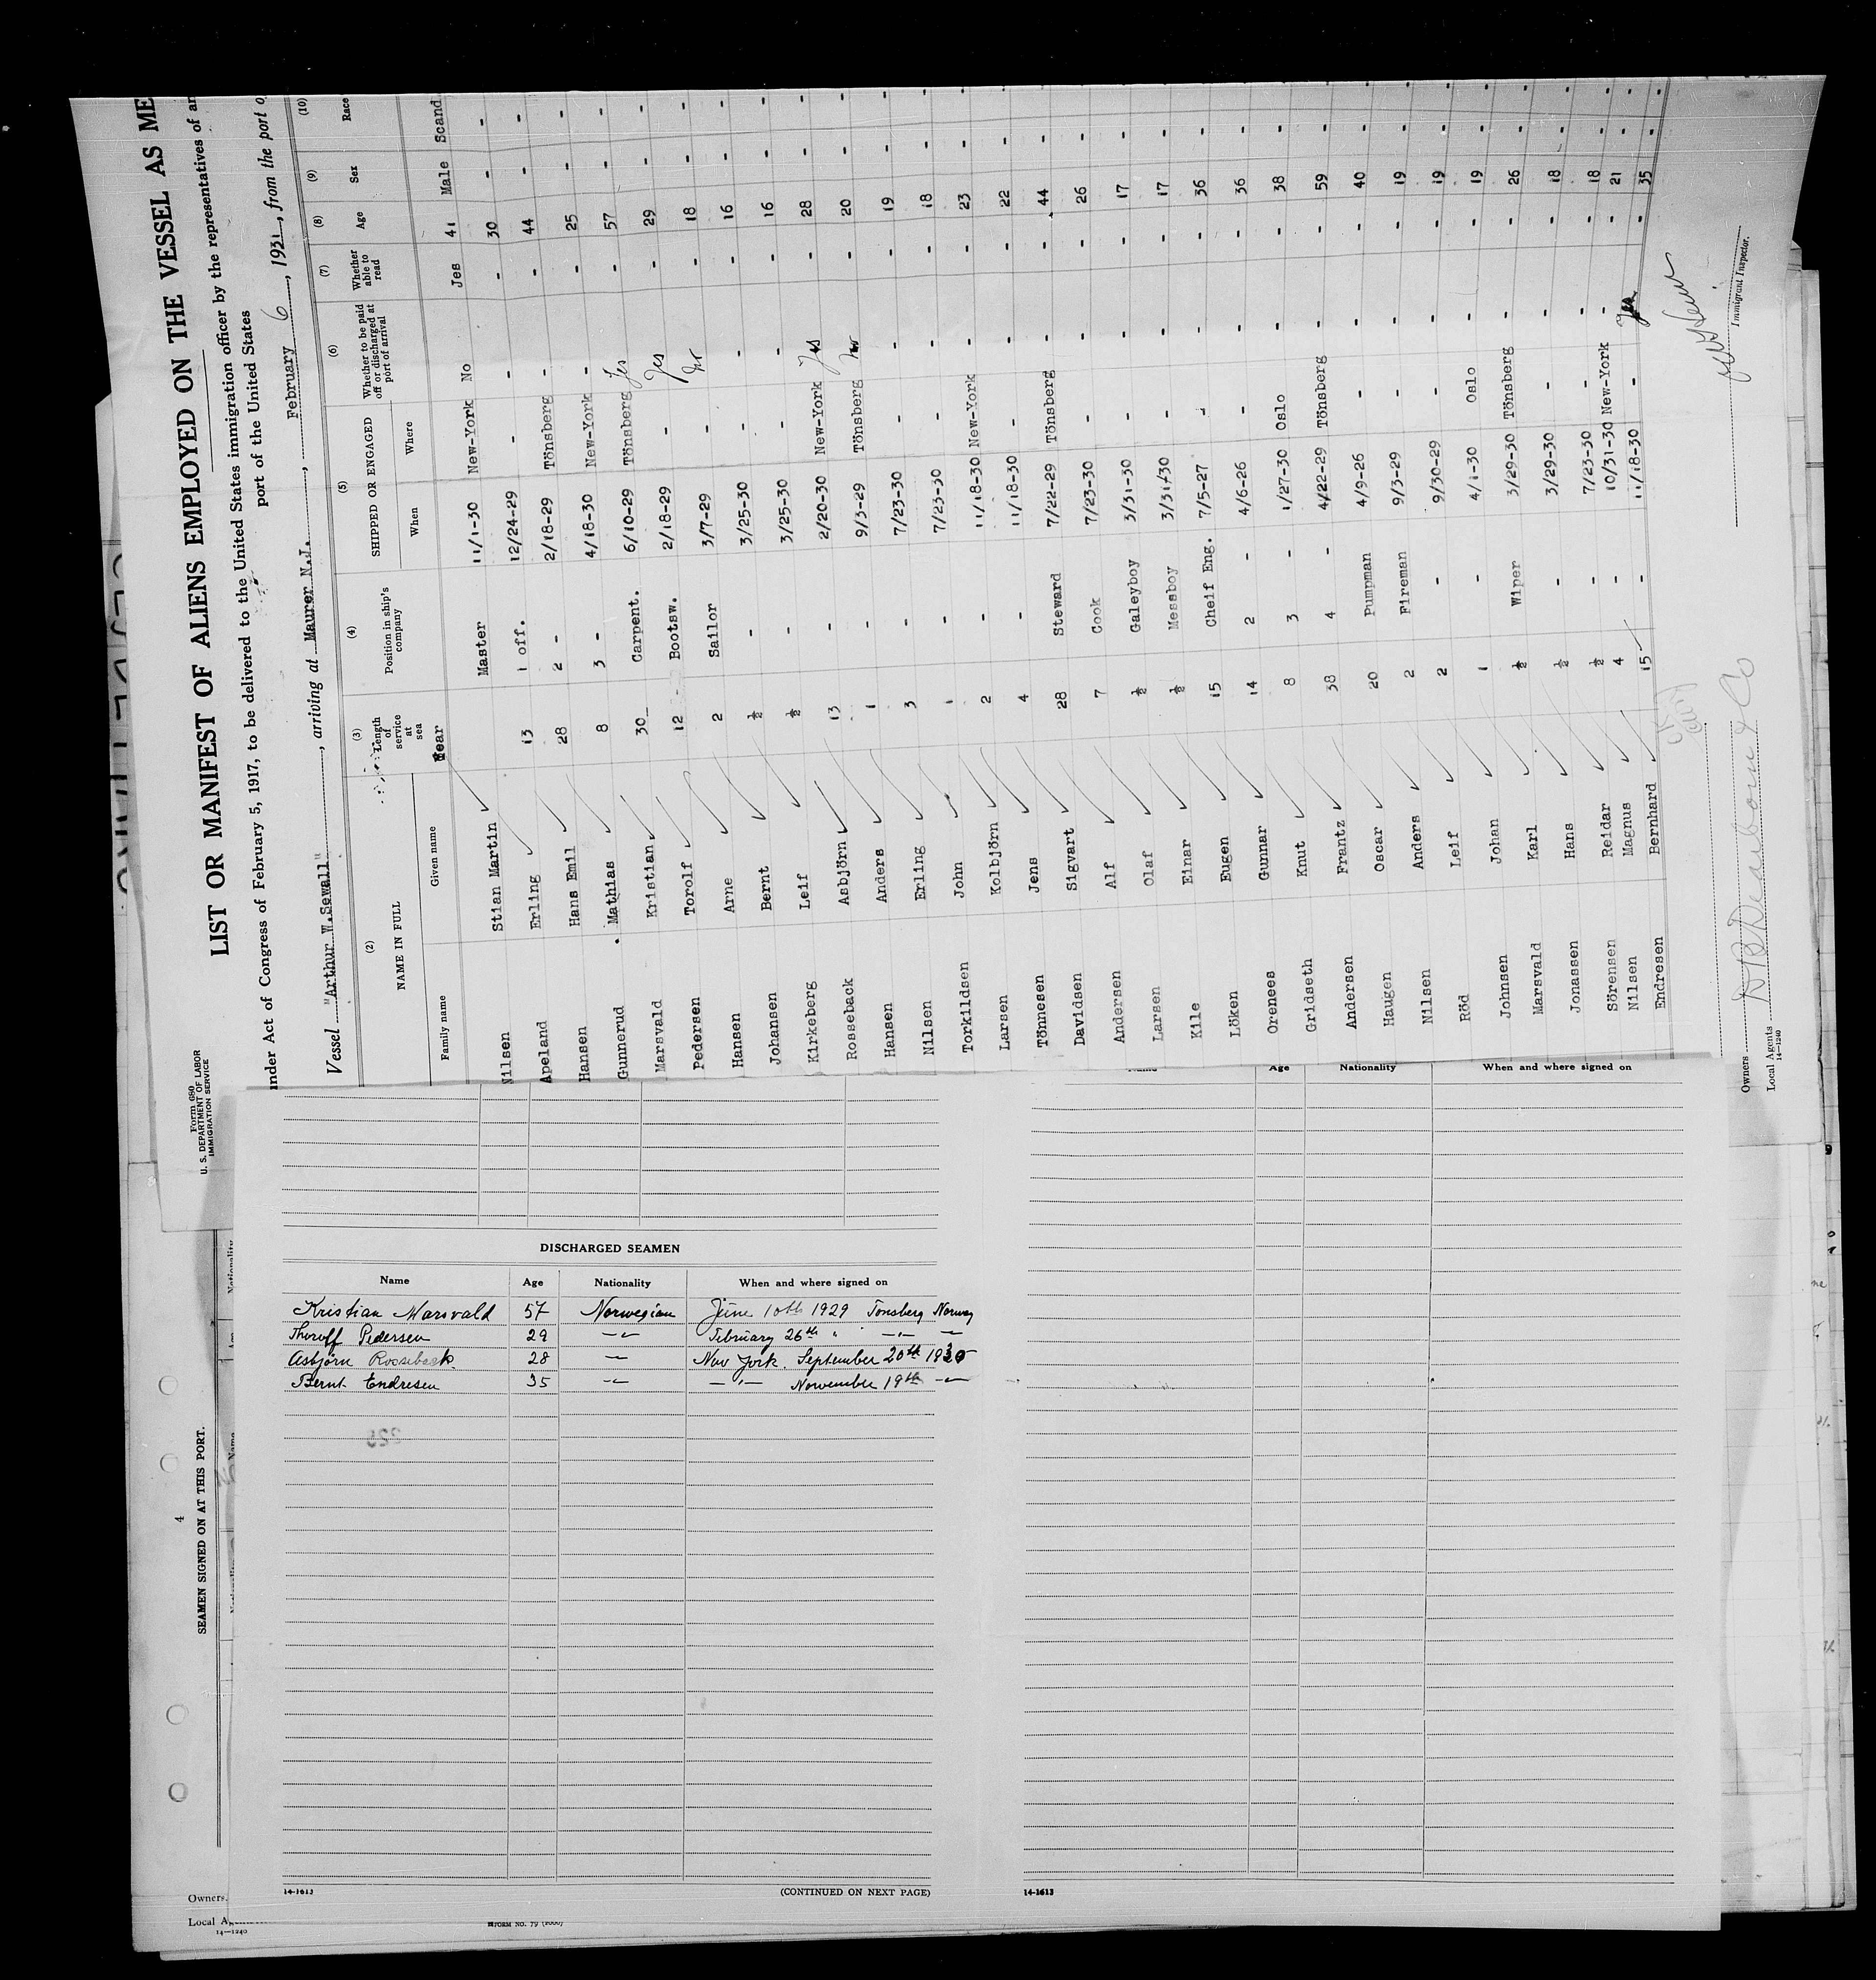 Form 680
U. S. DEPARTMENT OF LABOR
IMMIGRATION SERVICE
LIST OR MANIFEST OF ALIENS EMPLOYED ON THE VESSEL AS ME
nder Act of Congress of February 5, 1917, to be delivered to the United States immigration officer by the representatives of an
port of the United States
Vessel "Arthur W.Sewall", arriving at Maurer N.J., February 6, 1931, from the port o
(2) (3) (4) (5) (6) (7) (8) (9) (10)
NAME IN FULL Length of service at sea Position in ship's company SHIPPED OR ENGAGED Whether to be paid off or discharged at port of arrival Whether able to read Age Sex Race
Family name Given name When Where
Year
Nilsen Stian Martin Master 11/1-30 New-York No Jes 41 Male Scand
Apeland Erling 13 1 off. 12/24-29 - - - 30 - -
Hansen Hans Emil 28 2 - 2/18-29 Tönsberg - - 44 - -
Gunnerud Mathias 8 3 - 4/18-30 New-York - - 25 - -
Marsvald Kristian 30 Carpent. 6/10-29 Tönsberg Jes - 57 - -
Pedersen Torolf 12 Bootsw. 2/18-29 - Jes - 29 - -
Hansen Arne 2 Sailor 3/7-29 - No - 18 - -
Johansen Bernt ½ - 3/25-30 - - - 16 - -
Kirkeberg Leif ½ - 3/25-30 - - - 16 - -
Rosseback Asbjörn 13 - 2/20-30 New-York Jes - 28 - -
Hansen Anders 1 - 9/3-29 Tönsberg No - 20 - -
Nilsen Erling 3 - 7/23-30 - - - 19 - -
Torkildsen John 1 - 7/23-30 - - - 18 - -
Larsen Kolbjörn 2 - 11/18-30 New-York - - 23 - -
Tönnesen Jens 4 - 11/18-30 - - - 22 - -
Davidsen Sigvart 28 Steward 7/22-29 Tönsberg - - 44 - -
Andersen Alf 7 Cook 7/23-30 - - - 26 - -
Larsen Olaf ½ Galeyboy 3/31-30 - - - 17 - -
Kile Einar ½ Messboy 3/31/30 - - - 17 - -
Löken Eugen 15 Cheif Eng. 7/5-27 - - - 36 - -
Orenees Gunnar 14 2 - 4/6-26 - - - 36 - -
Gridseth Knut 8 3 - 1/27-30 Oslo - - 38 - -
Andersen Frantz 38 4 - 4/22-29 Tönsberg - - 59 - -
Haugen Oscar 20 Pumpman 4/9-26 - - - 40 - -
Nilsen Anders 2 Fireman 9/3-29 - - - 19 - -
Röd Leif 2 - 9/30-29 - - - 19 - -
Johnsen Johan 1 - 4/1-30 Oslo - - 19 - -
Marsvald Karl ½ Wiper 3/29-30 Tönsberg - - 26 - -
Jonassen Hans ½ - 3/29-30 - - - 18 - -
Sörensen Reidar ½ - 7/23-30 - - - 18 - -
Nilsen Magnus 4 - 10/31-30 New-York - - 21 - -
Endresen Bernhard 15 - 11/18-30 - Yes - 35 - -
Immigrant Inspector.
Owners
Local Agents
14-1240
Age Nationality When and where signed on
DISCHARGED SEAMEN
Name Age Nationality When and where signed on
Kristian Marsvald 57 Norwegian June 10th 1929 Tonsberg Norway
Thoroff Pedersen 29 -"- February 26th " -"- -"-
Asbjörn Rosseback. 28 -"- New York. September 20th 1930
Bernt Endresen 35 -"- -"- November 19th -"-
14-1613 (CONTINUED ON NEXT PAGE) 14-1613
4
SEAMEN SIGNED ON AT THIS PORT.
Nationality
Name
Owners.
Local A
14-1240
FORM NO. 79 (2000)